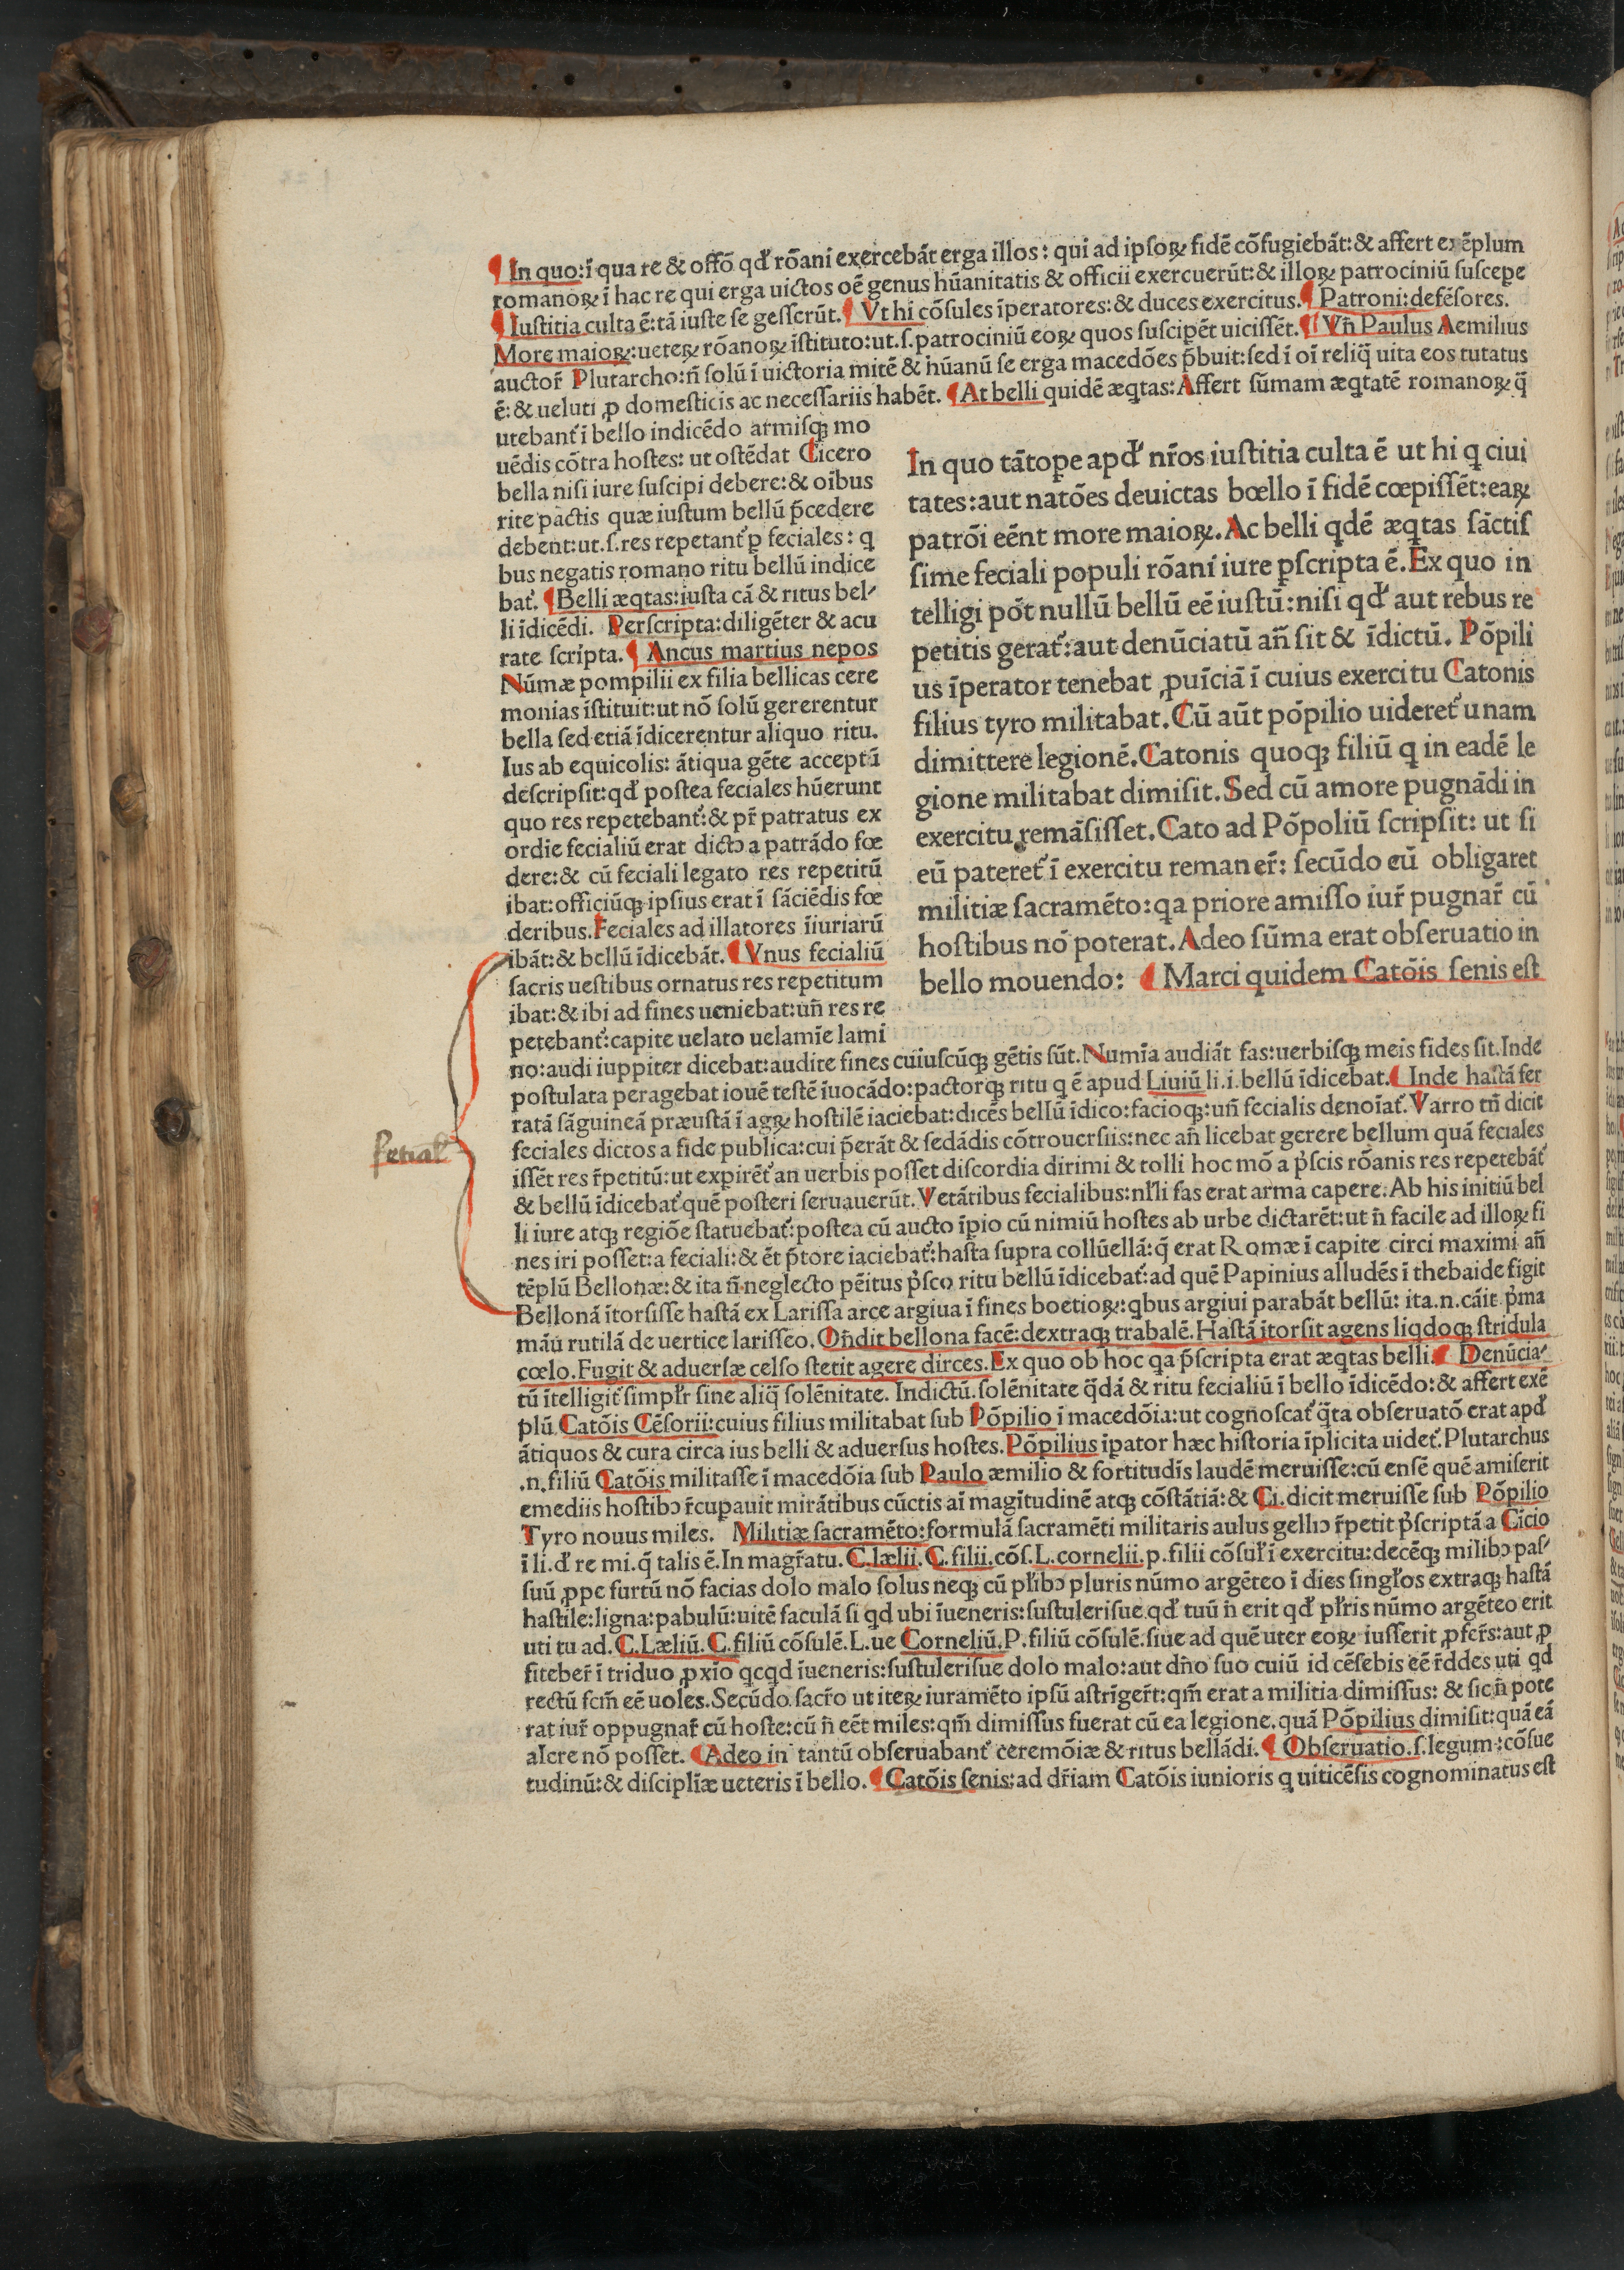 ¶ In quo: ī qua re & offō qđ rōani exercebāt erga illos: qui ad ipsoꝝ fidē cōfugiebāt: & affert exēplum
romanoꝝ ī hac re qui erga uictos oē genus hūanitatis & officii exercuerūt: & illoꝝ patrociniū suscepe
¶ Iustitia culta ē: tā iuste se gesserūt. ¶ Vt hi cōsules īperatores: & duces exercitus. ¶ Patroni: defēsores.
More maioꝝ: ueteꝝ rōanoꝝ īstituto: ut .s. patrociniū eoꝝ quos suscipēt uicissēt. ¶ Vn̄ Paulus Aemilius
auctor̄ Plutarcho: n̄ solū ī uictoria mitē & hūanū se erga macedōes p̄buit: sed ī oī reliq̄ uita eos tutatus
ē: & ueluti ꝓ domesticis ac necessariis habēt. ¶ At belli quidē æqtas: Affert sūmam æqtatē romanoꝝ q̄
utebant᷑ ī bello indicēdo armisqꝫ mo
uēdis cōtra hostes: ut ostēdat Cicero
bella nisi iure suscipi debere: & oībus
rite pactis quæ iustum bellū p̄cedere
debent: ut .s. res repetant᷑ p feciales: q
bus negatis romano ritu bellū indice
bat᷑. ¶ Belli æqtas: iusta cā & ritus bel-
li īdicēdi. Perscripta: diligēter & acu
rate scripta. ¶ Ancus martius nepos
Nūmæ pompilii ex filia bellicas cere
monias īstituit: ut nō solū gererentur
bella sed etiā īdicerentur aliquo ritu.
Ius ab equicolis: ātiqua gēte acceptū
descripsit: qđ postea feciales hūerunt
quo res repetebant᷑: & pr̄ patratus ex
ordie fecialiū erat dictɔ a patrādo fœ
dere: & cū feciali legato res repetitū
ibat: officiūqꝫ ipsius erat ī sāciēdis fœ
deribus. Feciales ad illatores īiuriarū
ibāt: & bellū īdicebāt. ¶ Vnus fecialiū
sacris uestibus ornatus res repetitum
ibat: & ibi ad fines ueniebat: un̄ res re
petebant᷑: capite uelato uelamīe lami
In quo tātope apđ nr̄os iustitia culta ē ut hi q ciui
tates: aut natōes deuictas bœllo ī fidē cœpissēt: eaꝝ
patrōi eēnt more maioꝝ. Ac belli qdē æqtas sāctis
sime feciali populi rōani iure pscripta ē. Ex quo in
telligi pōt nullū bellū eē iustū: nisi qđ aut rebus re
petitis gerat᷑: aut denūciatū an̄ sit & īdictū. Pōpili
us īperator tenebat ꝓuīciā ī cuius exercitu Catonis
filius tyro militabat. Cū aūt pōpilio uideret᷑ unam
dimittere legionē. Catonis quoqꝫ filiū q in eadē le
gione militabat dimisit. Sed cū amore pugnādi in
exercitu remāsisset. Cato ad Pōpoliū scripsit: ut si
eū pateret᷑ ī exercitu remaner̄: secūdo eū obligaret
militiæ sacramēto: qa priore amisso iur̄ pugnar̄ cū
hostibus nō poterat. Adeo sūma erat obseruatio in
bello mouendo: ¶ Marci quidem Catōis senis est
no: audi iuppiter dicebat: audite fines cuiuscūqꝫ gētis sūt. Numīa audiāt fas: uerbisqꝫ meis fides sit. Inde
postulata peragebat iouē testē īuocādo: pactorqꝫ ritu q ē apud Liuiū li. i. bellū īdicebat. ¶ Inde hastā fer
ratā sāguineā præustā ī agꝝ hostilē iaciebat: dicēs bellū īdico: facioqꝫ: un̄ fecialis denoīat᷑. Varro tn̄ dicit
feciales dictos a fide publica: cui p̄erāt & sedādis cōtrouersiis: nec an̄ licebat gerere bellum quā feciales
Fetial᷑
issēt res r̄petitū: ut expirēt᷑ an uerbis posset discordia dirimi & tolli hoc mō a p̄scis rōanis res repetebāt᷑
& bellū īdicebat᷑ quē posteri seruauerūt. Vetātibus fecialibus: nl̄li fas erat arma capere. Ab his initiū bel
li iure atqꝫ regiōe statuebat᷑: postea cū aucto īpio cū nimiū hostes ab urbe dictarēt: ut n̄ facile ad illoꝝ fi
nes iri posset: a feciali: & ēt p̄tore iaciebat᷑: hasta supra collūellā: q̄ erat Romæ ī capite circi maximi an̄
tēplū Bellonæ: & ita n̄ neglecto pēitus p̄sco ritu bellū īdicebat᷑: ad quē Papinius alludēs ī thebaide figit
Bellonā ītorsisse hastā ex Larissa arce argiua ī fines boetioꝝ: qbus argiui parabāt bellū: ita .n. cāit p̄ma
māū rutilā de uertice larisseo. On̄dit bellona facē: dextraqꝫ trabalē. Hastā ītorsit agens liqdoqꝫ stridula
cœlo. Fugit & aduersæ celso stetit agere dirces. Ex quo ob hoc qa p̄scripta erat æqtas belli. ¶ Denūcia-
tū ītelligit᷑ simpl̄r sine aliq̄ solēnitate. Indictū. solēnitate q̄dā & ritu fecialiū ī bello īdicēdo: & affert exē
plū Catōis Cēsorii: cuius filius militabat sub Pōpilio ī macedōia: ut cognoscat᷑ q̄ta obseruatō erat apđ
ātiquos & cura circa ius belli & aduersus hostes. Pōpilius īpator hæc historia īplicita uidet᷑. Plutarchus
.n. filiū Catōis militasse ī macedōia sub Paulo æmilio & fortitudīs laudē meruisse: cū ensē quē amiserit
emediis hostibɔ r̄cupauit mirātibus cūctis aī magītudinē atqꝫ cōstātiā: & Ci. dicit meruisse sub Pōpilio
Tyro nouus miles. Militiæ sacramēto: formulā sacramēti militaris aulus gelliɔ r̄petit p̄scriptā a Cīcio
ī li. đ re mi. q̄ talis ē. In magr̄atu. C. lælii. C. filii. cōs. L. cornelii. p. filii cōsul̄ ī exercitu: decēqꝫ milibɔ pas-
suū ꝓpe furtū nō facias dolo malo solus neqꝫ cū pl̄ibɔ pluris nūmo argēteo ī dies singl̄os extraqꝫ hastā
hastile: ligna: pabulū: uitē faculā si qd ubi īueneris: sustulerisue qđ tuū n̄ erit qđ pl̄ris nūmo argēteo erit
uti tu ad. C. Læliū. C. filiū cōsulē. L. ue Corneliū. P. filiū cōsulē. siue ad quē uter eoꝝ iusserit ꝓfer̄s: aut ꝓ
fiteber̄ ī triduo ꝓxīo qcqd īueneris: sustulerisue dolo malo: aut dn̄o suo cuiū id cēsebis eē r̄ddes uti qd
rectū fcm̄ eē uoles. Secūdo sacr̄o ut iteꝝ iuramēto ipsū astrīger̄t: qm̄ erat a militia dimissus: & sic n̄ pote
rat iur̄ oppugnar̄ cū hoste: cū n̄ eēt miles: qm̄ dimissus fuerat cū ea legione. quā Pōpilius dimisit: quā eā
alere nō posset. ¶ Adeo in tantū obseruabant᷑ ceremōiæ & ritus bellādi. ¶ Obseruatio. s. legum: cōsue
tudinū: & discipliæ ueteris ī bello. ¶ Catōis senis: ad dr̄iam Catōis iunioris q uiticēsis cognominatus est